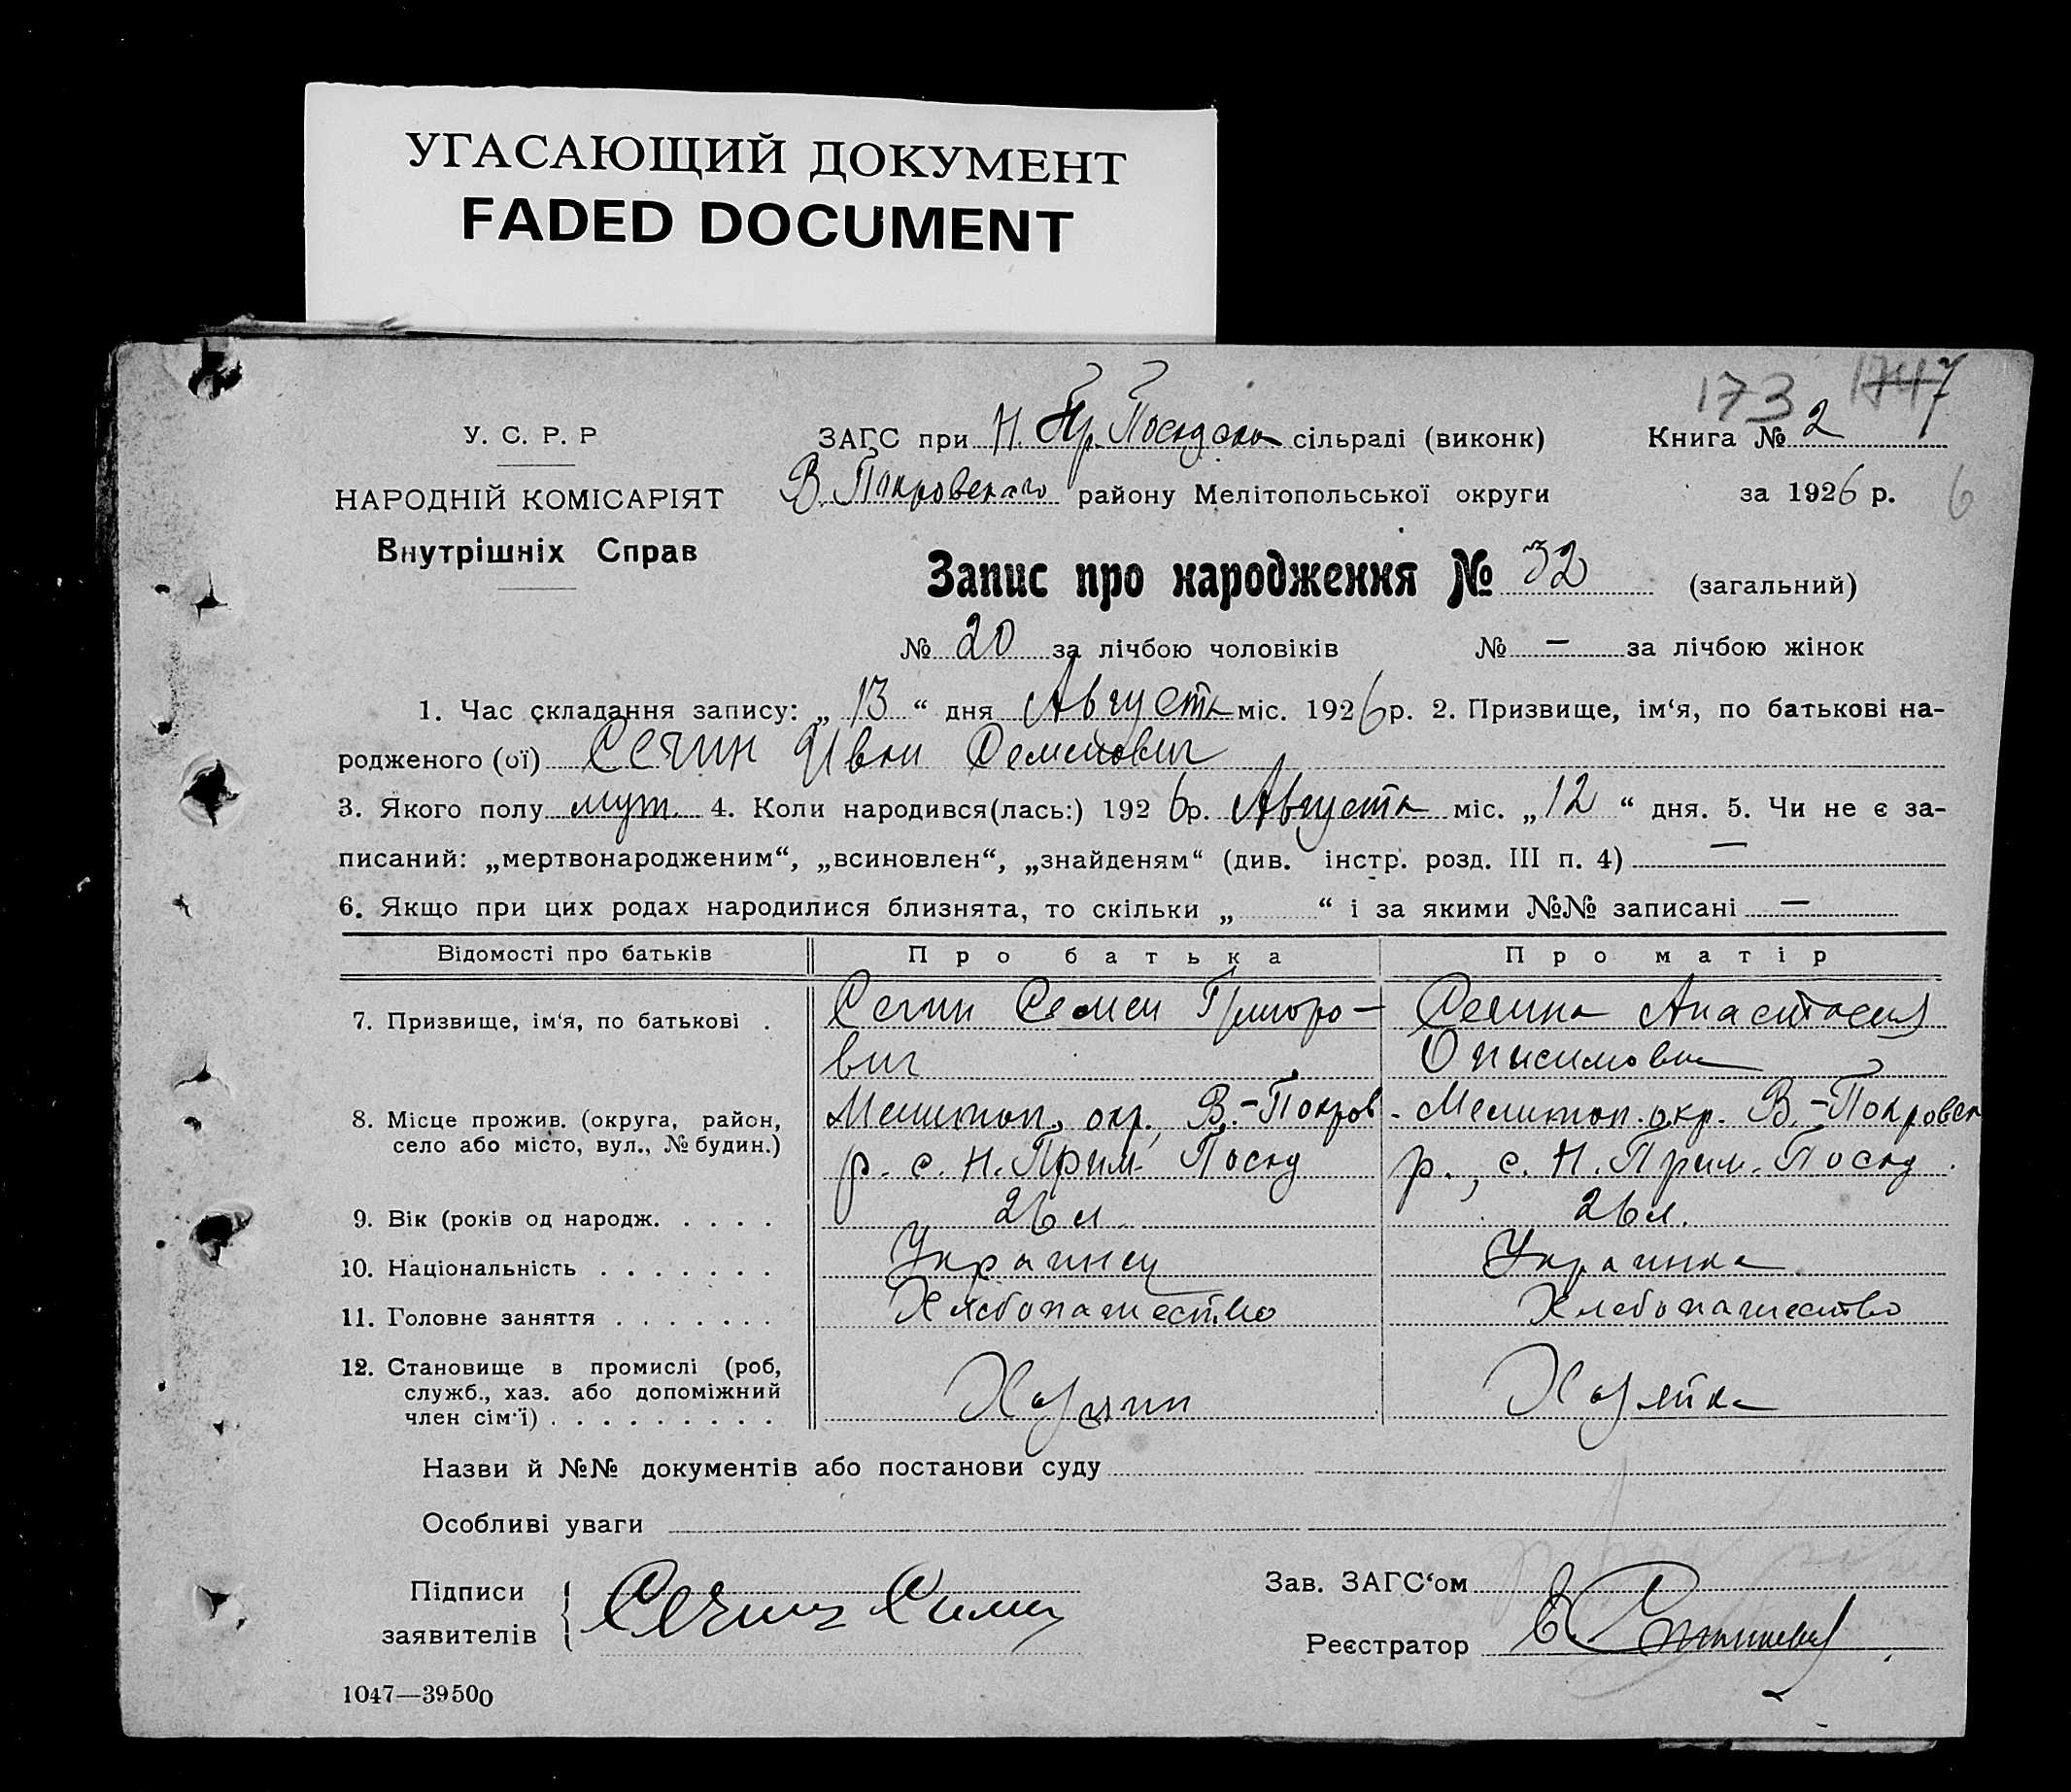 УГАСАЮЩИЙ ДОКУМЕНТ
FADED DOCUMENT
173 1747
У. С. Р. Р
НАРОДНІЙ КОМІСАРІЯТ
Внутрішніх Справ
ЗАГС при Н. Пр. Посадском сільраді (виконк)
В Покровского району Мелітопольської округи
Книга № 2
за 1926 р. 6
Запис про народження № 32 (загальний)
№ 20 за лічбою чоловіків № — за лічбою жінок
1. Час складання запису: „ 13 “ дня Августа міс. 1926 р. 2. Призвище, ім‘я, по батькові на-
родженого (ої) Сечин Иван Семенович
3. Якого полу муж. 4. Коли народився(лась:) 1926 р. Августа міс. „ 12 “ дня. 5. Чи не є за-
писаний: „мертвонародженим“, „всиновлен“, „знайденям“ (див. інстр. розд. III п. 4) —
6. Якщо при цих родах народилися близнята, то скільки „ “ і за якими №№ записані —
Відомості про батьків Про батька Про матір
7. Призвище, ім‘я, по батькові . Сечин Семен Григоро- Сечина Анастасия
вич Онисимовна
8. Місце прожив. (округа, район, Мелитоп. окр., В.-Покров- Мелитоп. окр. В.-Покровск
село або місто, вул., № будин.) р. с. Н. Прим. Посад р., с. Н. Прим. Посад.
9. Вік (років од народж. . . . . 26 л. 26 л.
10. Національність . . . . . . . Украинец Украинка
11. Головне заняття . . . . . . . Хлебопашество Хлебопашество
12. Становище в промислі (роб,
служб., хаз. або допоміжний Хозяин Хозяйка
член сім‘ї) . . . . . . . . .
Назви й №№ документів або постанови суду
Особливі уваги
Підписи
заявителів { Сечин Симен
Зав. ЗАГС‘ом
Реєстратор
1047—39500